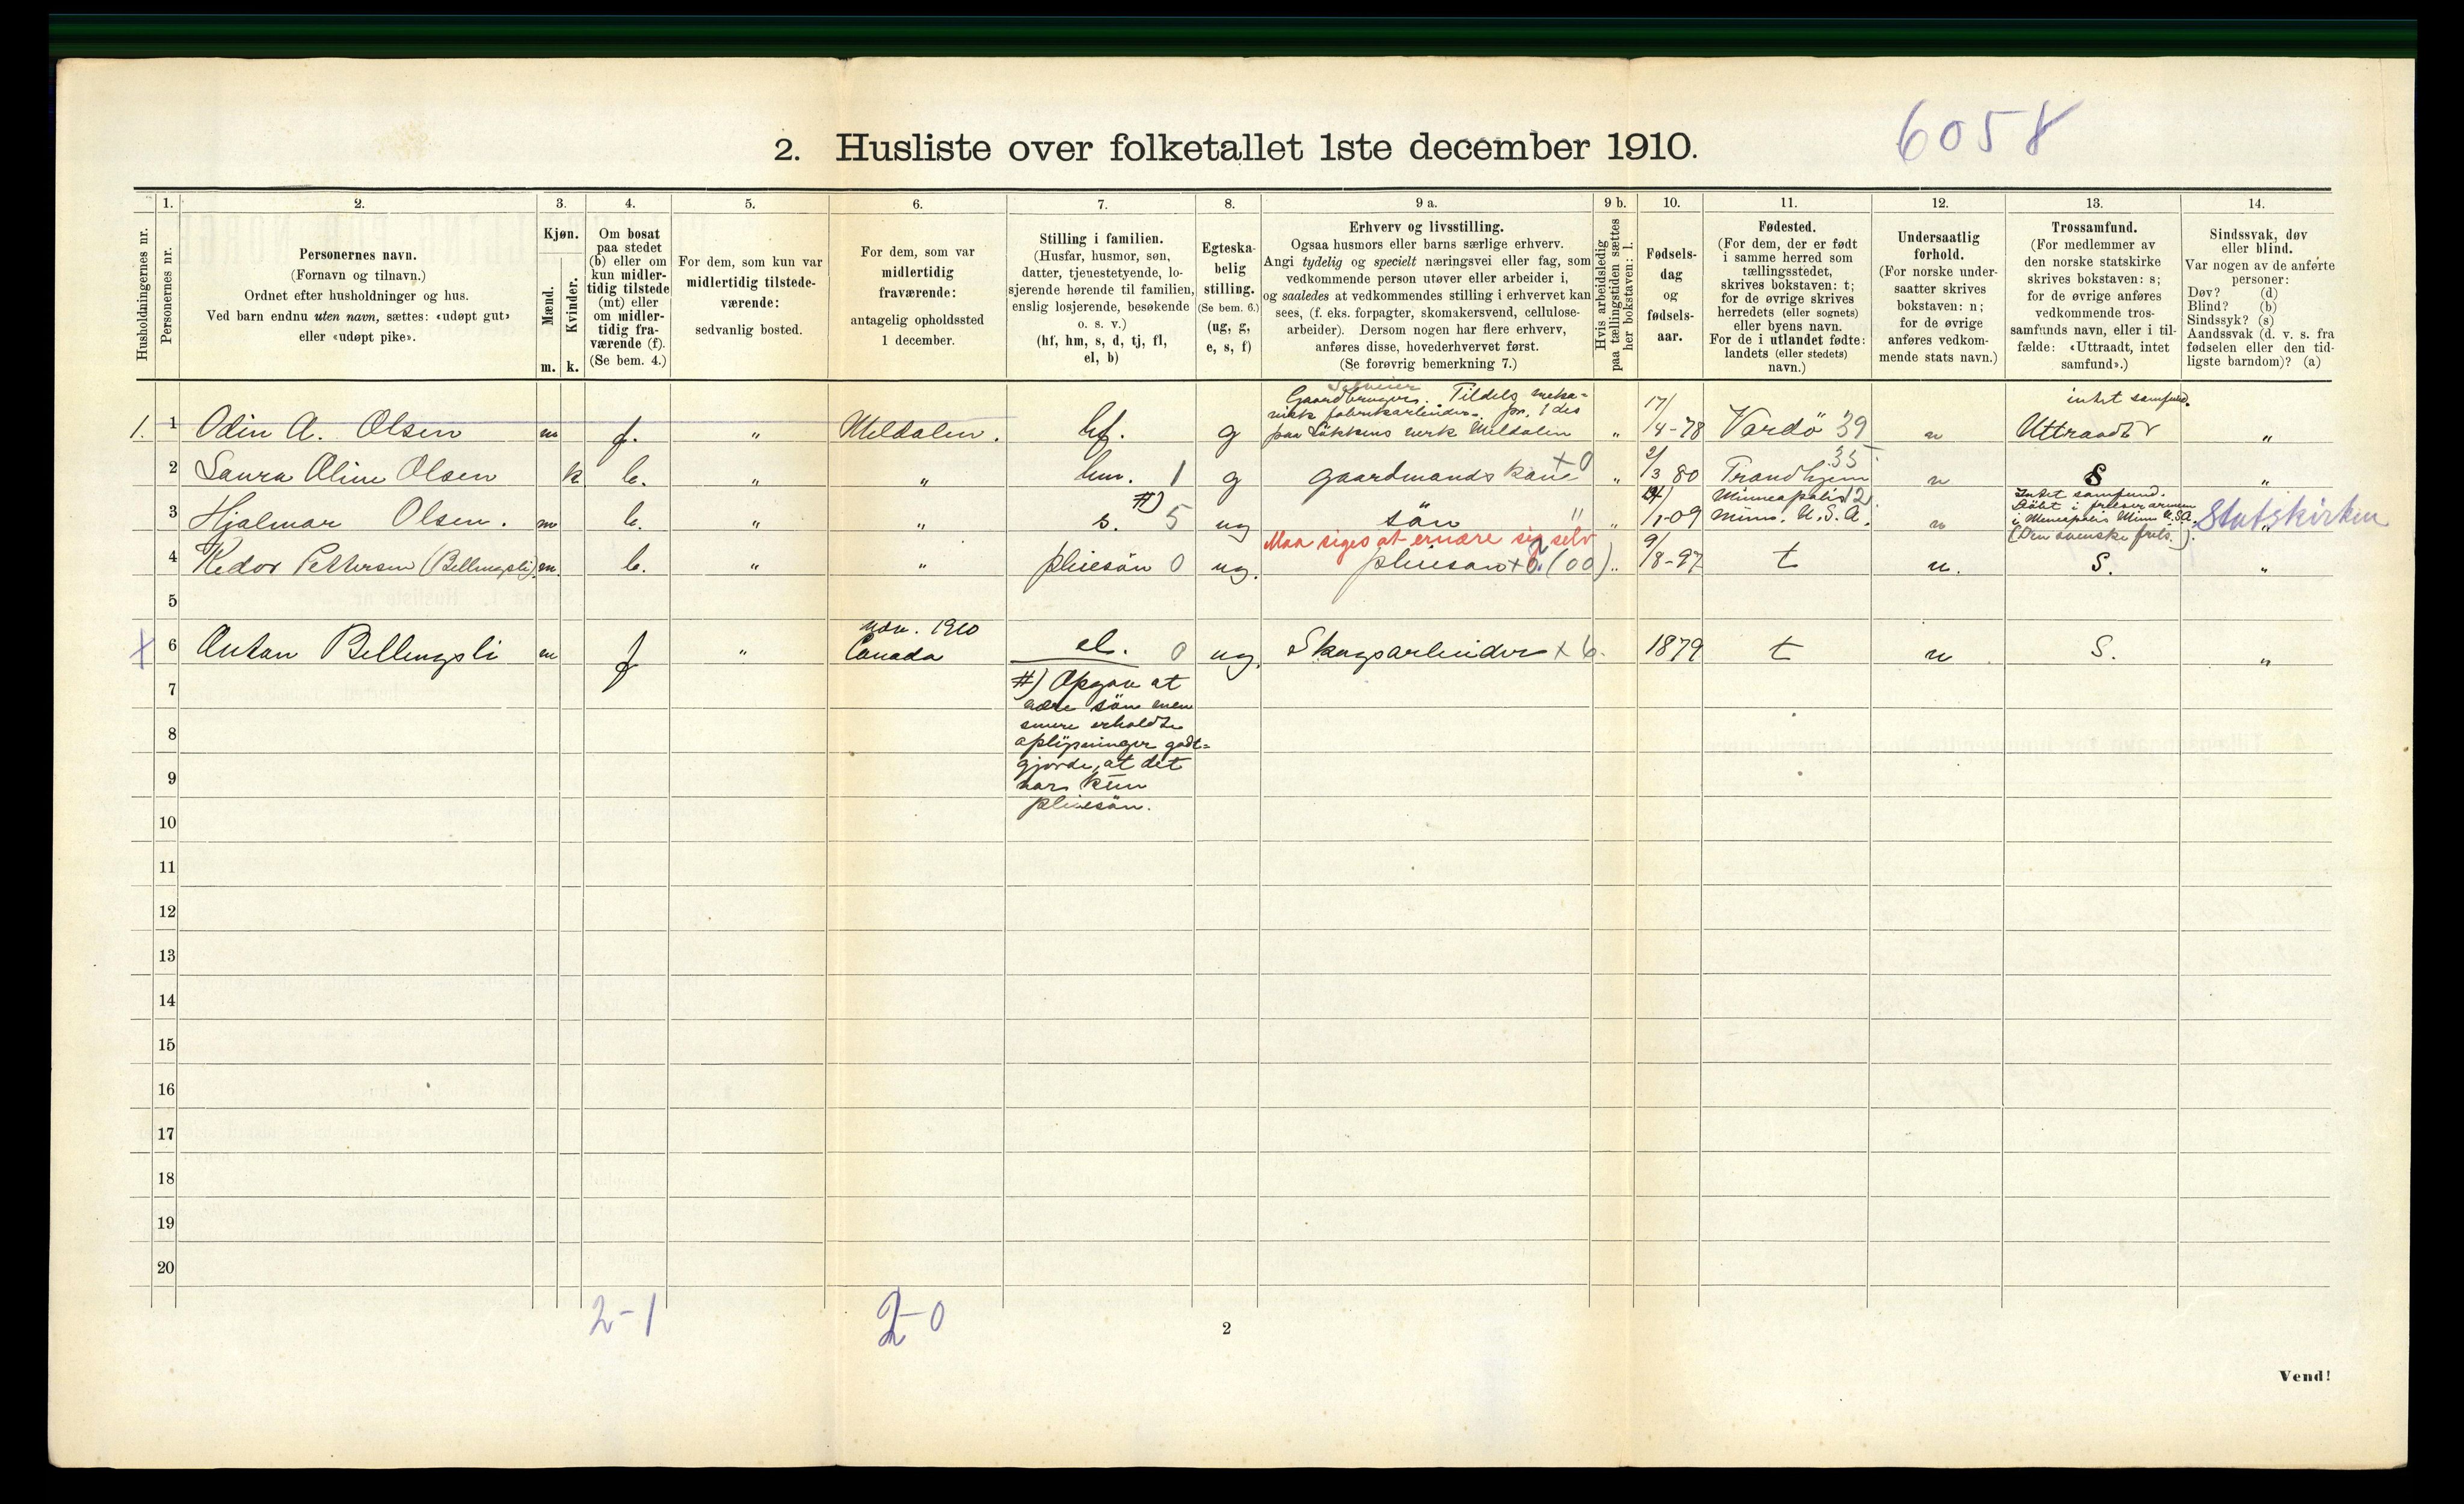 6058
2. Husliste over folketallet 1ste december 1910.
Husholdningernes nr.
1.
Personernes nr.
2.
Personernes navn.
(Fornavn og tilnavn.)
Ordnet efter husholdninger og hus.
Ved barn endnu uten navn, sættes: «udøpt gut»
eller «udøpt pike».
3.
Kjøn.
Mænd.
Kvinder.
m. k.
4.
Om bosat
paa stedet
(b) eller om
kun midler-
tidig tilstede
(mt) eller
om midler-
tidig fra-
værende (f).
(Se bem. 4.)
5.
For dem, som kun var
midlertidig tilstede-
værende:
sedvanlig bosted.
6.
For dem, som var
midlertidig
fraværende:
antagelig opholdssted
1 december.
7.
Stilling i familien.
(Husfar, husmor, søn,
datter, tjenestetyende, lo-
sjerende hørende til familien,
enslig losjerende, besøkende
o. s. v.)
(hf, hm, s, d, tj, fl,
el, b)
8.
Egteska-
belig
stilling.
(Se bem. 6.)
(ug, g,
e, s, f)
9 a.
Erhverv og livsstilling.
Ogsaa husmors eller barns særlige erhverv.
Angi tydelig og specielt næringsvei eller fag, som
vedkommende person utøver eller arbeider i,
og saaledes at vedkommendes stilling i erhvervet kan
sees, (f. eks. forpagter, skomakersvend, cellulose-
arbeider). Dersom nogen har flere erhverv,
anføres disse, hovederhvervet først.
(Se forøvrig bemerkning 7.)
9 b.
Hvis arbeidsledig
paa tællingstiden sættes
her bokstaven: l.
10.
Fødsels-
dag
og
fødsels-
aar.
11.
Fødested.
(For dem, der er født
i samme herred som
tællingsstedet,
skrives bokstaven: t;
for de øvrige skrives
herredets (eller sognets)
eller byens navn.
For de i utlandet fødte:
landets (eller stedets)
navn.)
12.
Undersaatlig
forhold.
(For norske under-
saatter skrives
bokstaven: n;
for de øvrige
anføres vedkom-
mende stats navn.)
13.
Trossamfund.
(For medlemmer av
den norske statskirke
skrives bokstaven: s;
for de øvrige anføres
vedkommende tros-
samfunds navn, eller i til-
fælde: «Uttraadt, intet
samfund».)
14.
Sindssvak, døv
eller blind.
Var nogen av de anførte
personer:
Døv? (d)
Blind? (b)
Sindssyk? (s)
Aandssvak (d. v. s. fra
fødselen eller den tid-
ligste barndom)? (a)
Selveier
Gaardbruger. Tildels meka-
nisk fabrikarbeider. pr. 1 des
intet samfund.
1. 1 Odin A. Olsen m f. " Meldalen. hf. g paa Løkkens verk Meldalen " 17/4-78 Vardö 39 n Uttraadt "
2 Laura Oline Olsen k b. " " hm. 1 g gaardmands kone +0 " 2/3 80 Trondhjem 35 n S "
3 Hjalmar Olsen. m b. " " s. #) 5 ug sön " " 1/1-09 Minneapolis 12 Minn. U.S.A. n Intet samfund. Döbt i frelserarmeen i Minneapolis Minn U.S.A. (Den svenske frels.). " Statskirken
Maa siges at ernære sig selv
4 Kedor Pettersen (Bellingsli) m b. " " pleiesön 0 ug. pleiesön + (00) " 9/8-97 t n. S. "
5
6 Anton Bellingsli m f " nov. 1910 Canada el. 0 ug. Skogsarbeider + 6. 1879 t n S. "
#) Opgav at
være sön men
senere erholdte
oplysninger godt-
gjorde, at det
var kun
pleiesön.
7
8
9
10
11
12
13
14
15
16
17
18
19
20
2-1
2-0
2
Vend!